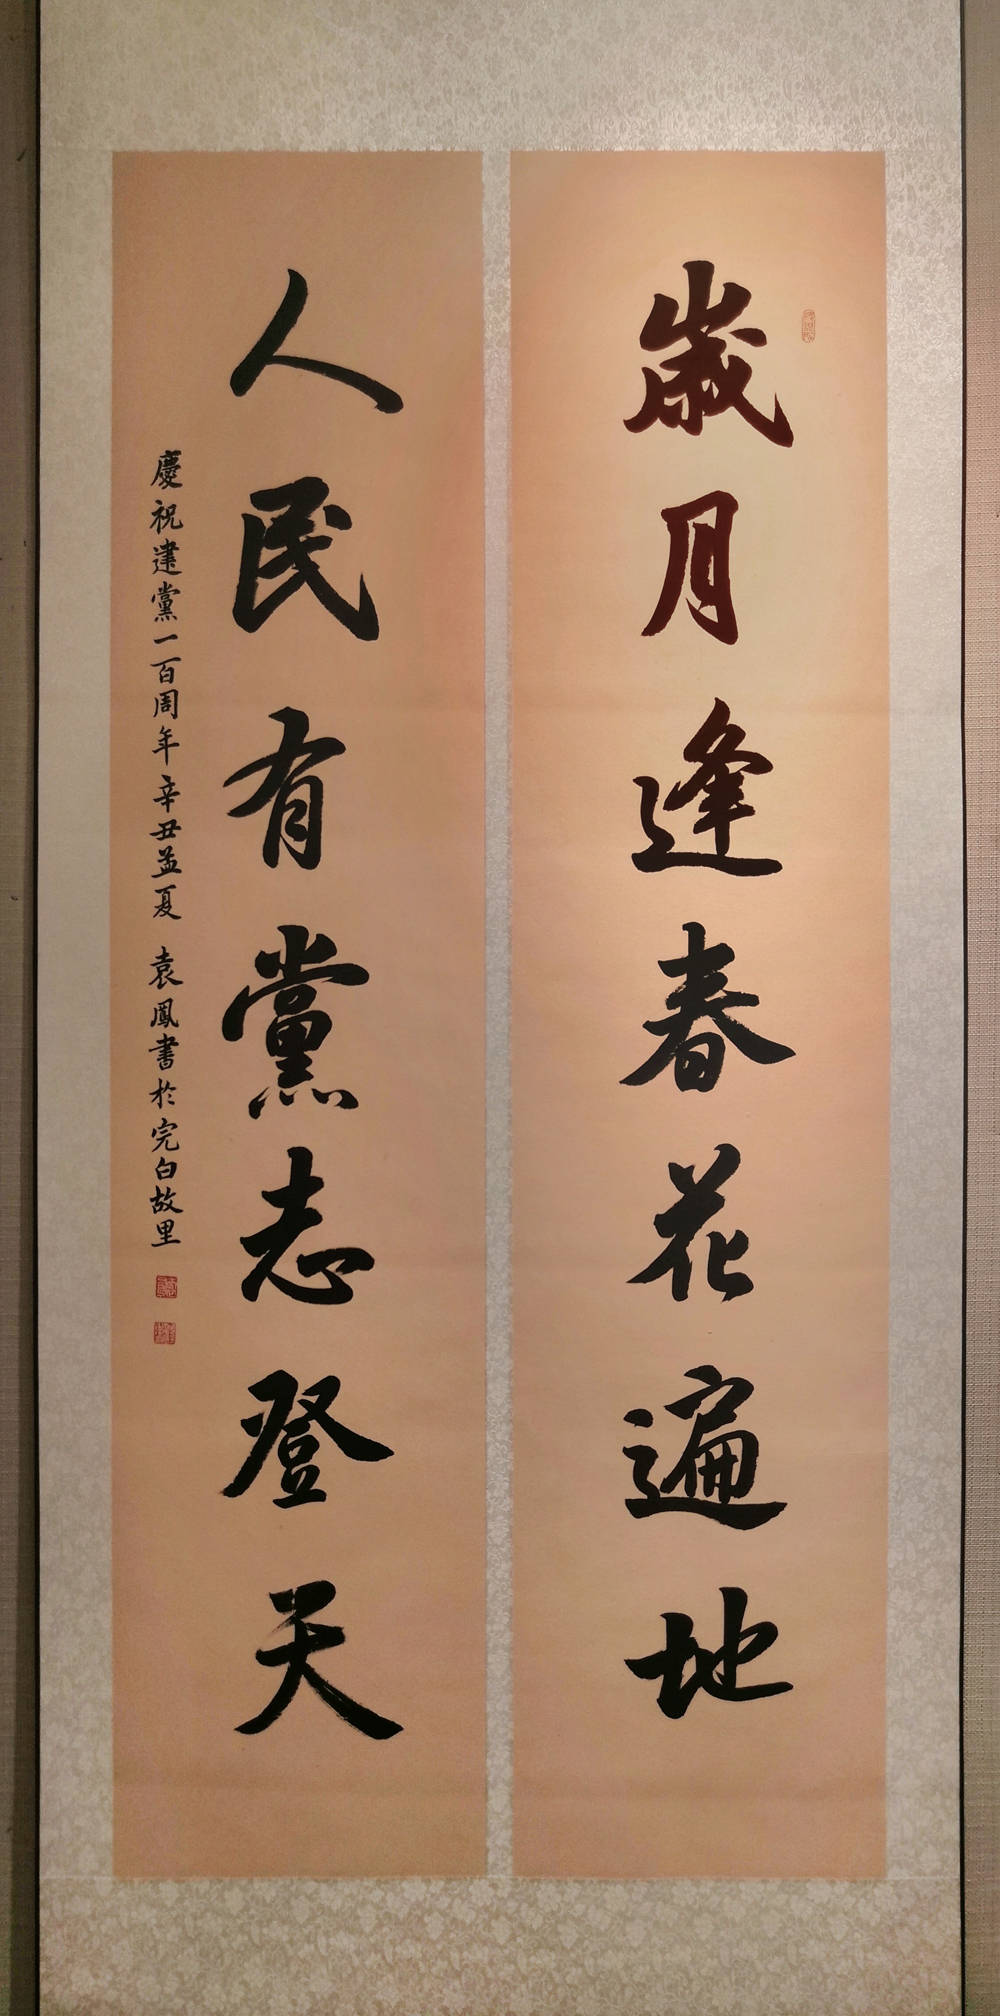 歲月逢春花遍地
人民有黨志登天
慶祝建黨一百周年辛丑孟夏 袁鳳書於完白故里